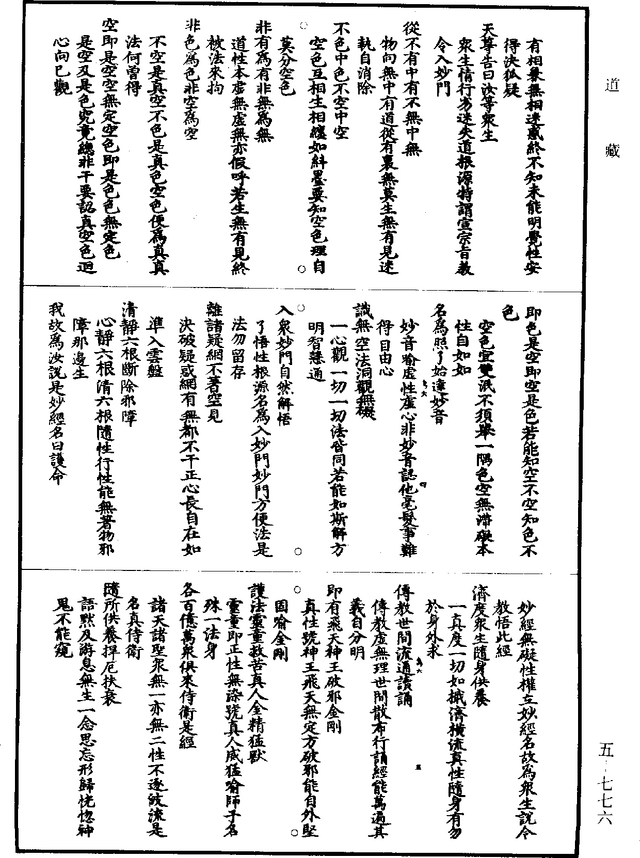 道藏
有相兼無相迷惑終不知未能明覺性安
得決狐疑
天尊告曰汝等衆生
衆生情行劣迷失道根源特謂宣宗旨教
令入妙門
從不有中有不無中無
物向無中有道從有裏無莫生無有見迷
執自消除
不色中色不空中空
空色互相生相纏如糾墨要知空色理自
莫分空色
非有爲有非無爲無
道性本虛無虛無亦假呼若生無有見終
被法來拘
非色爲色非空爲空
不空是真空不色是真色空色便爲真真
法何曾得
空即是空空無定空色即是色色無定色
是空及是色究竟總非干要認真空色迴
心向己觀
即色是空即空是色若能知空不空知色不
色
空色宜雙泯不須舉一隅色空無滯礙本
性自如如
名爲照了始達妙音
妙音喻虛性虛心非妙音認他毫髮事難
得目由心
識無空法洞觀無礙
一心觀一切一切法皆同若能如斯解方
明智慧通
入衆妙門自然解悟
了悟性根源名爲入妙門妙門方便法是
法勿留存
離諸疑網不著空見
決破疑惑網有無都不干正心長自在如
準入雲盤
清靜六根斷除邪障
心靜六根清六根隨性行性能無著物邪
障那邊生
我故爲汝說是妙經名曰護命
妙經無礙性權立妙經名故爲衆生說令
教悟此經
濟度衆生隨身供養
一真度一切如栰濟橫流真性隨身有勿
於身外求
傳教世間流通讀誦
傳教虛無理世間散布行誦經能萬遍其
義自分明
即有飛天神王破邪金剛
真性號神王飛天無定方破邪能自外堅
固喻金剛
護法靈童救苦真人金精猛獸
靈童即正性無染號真人威猛喻師子名
殊一法身
各百億萬衆俱來侍衛是經
諸天諸聖衆無一亦無二性不逐岐流是
名真侍衛
隨所供養捍厄扶衰
語默及游息無生一念思忘形歸恍惚神
鬼不能窺
五·七七六